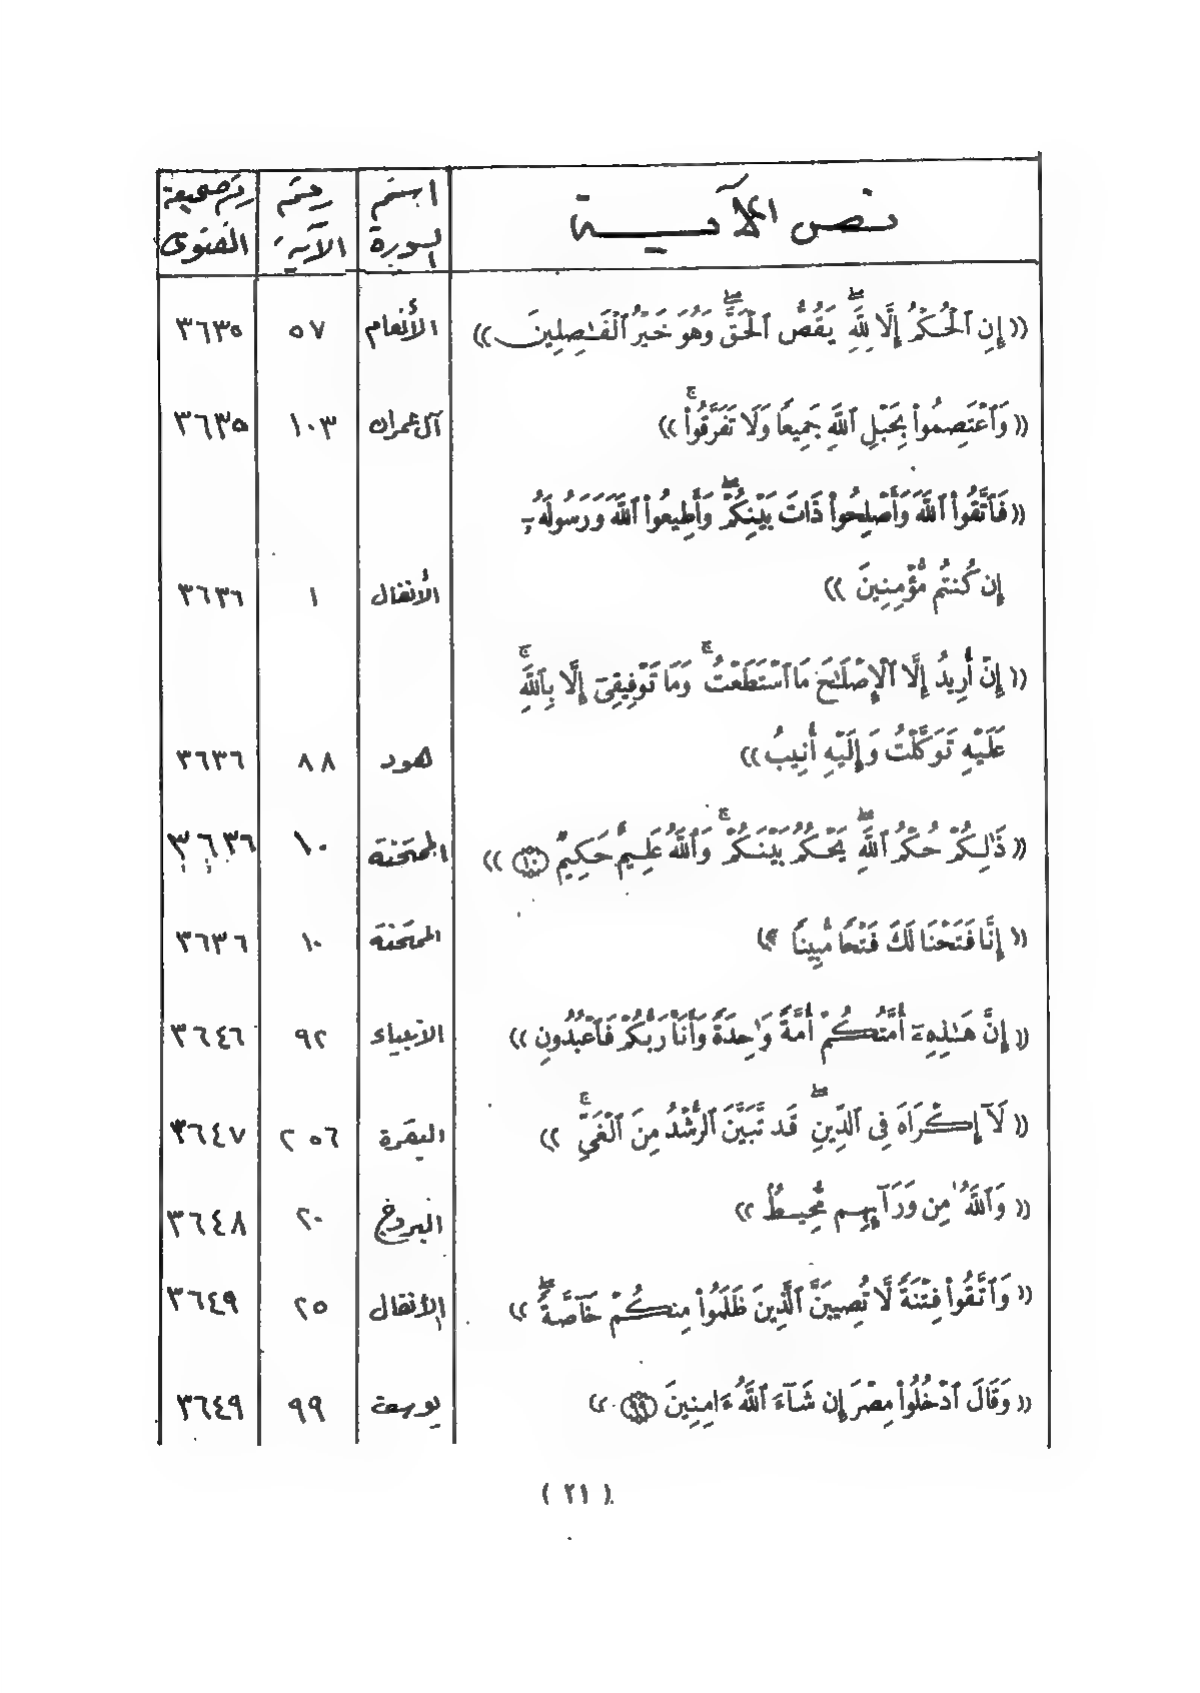 نص الآية اسم السورة رقم الآية رقم صحيفة الفتوى
(( إِنِ ٱلْحُكْمُ إِلَّا لِلَّهِ ۖ يَقُصُّ ٱلْحَقَّ ۖ وَهُوَ خَيْرُ ٱلْفَـٰصِلِينَ )) الأنعام ٥٧ ٣٦٣٥
(( وَٱعْتَصِمُوا۟ بِحَبْلِ ٱللَّهِ جَمِيعًا وَلَا تَفَرَّقُوا۟ ۚ )) آل عمران ١٠٣ ٣٦٣٥
(( فَٱتَّقُوا۟ ٱللَّهَ وَأَصْلِحُوا۟ ذَاتَ بَيْنِكُمْ ۖ وَأَطِيعُوا۟ ٱللَّهَ وَرَسُولَهُۥٓ
إِن كُنتُم مُّؤْمِنِينَ )) الأنفال ١ ٣٦٣٦
(( إِنْ أُرِيدُ إِلَّا ٱلْإِصْلَـٰحَ مَا ٱسْتَطَعْتُ ۚ وَمَا تَوْفِيقِىٓ إِلَّا بِٱللَّهِ ۚ
عَلَيْهِ تَوَكَّلْتُ وَإِلَيْهِ أُنِيبُ )) هود ٨٨ ٣٦٣٦
(( ذَٰلِكُمْ حُكْمُ ٱللَّهِ ۖ يَحْكُمُ بَيْنَكُمْ ۚ وَٱللَّهُ عَلِيمٌ حَكِيمٌ ١٠ )) الممتحنة ١٠ ٣٦٣٦
(( إِنَّا فَتَحْنَا لَكَ فَتْحًا مُّبِينًا )) الممتحنة ١٠ ٣٦٣٦
(( إِنَّ هَـٰذِهِۦٓ أُمَّتُكُمْ أُمَّةً وَٰحِدَةً وَأَنَا۠ رَبُّكُمْ فَٱعْبُدُونِ )) الأنبياء ٩٢ ٣٦٤٦
(( لَآ إِكْرَاهَ فِى ٱلدِّينِ ۖ قَد تَّبَيَّنَ ٱلرُّشْدُ مِنَ ٱلْغَىِّ ۚ )) البقرة ٢٥٦ ٣٦٤٧
(( وَٱللَّهُ مِن وَرَآئِهِم مُّحِيطٌ )) البروج ٢٠ ٣٦٤٨
(( وَٱتَّقُوا۟ فِتْنَةً لَّا تُصِيبَنَّ ٱلَّذِينَ ظَلَمُوا۟ مِنكُمْ خَآصَّةً ۖ )) الأنفال ٢٥ ٣٦٤٩
(( وَقَالَ ٱدْخُلُوا۟ مِصْرَ إِن شَآءَ ٱللَّهُ ءَامِنِينَ ٩٩ )) يوسف ٩٩ ٣٦٤٩
( ٢١ )